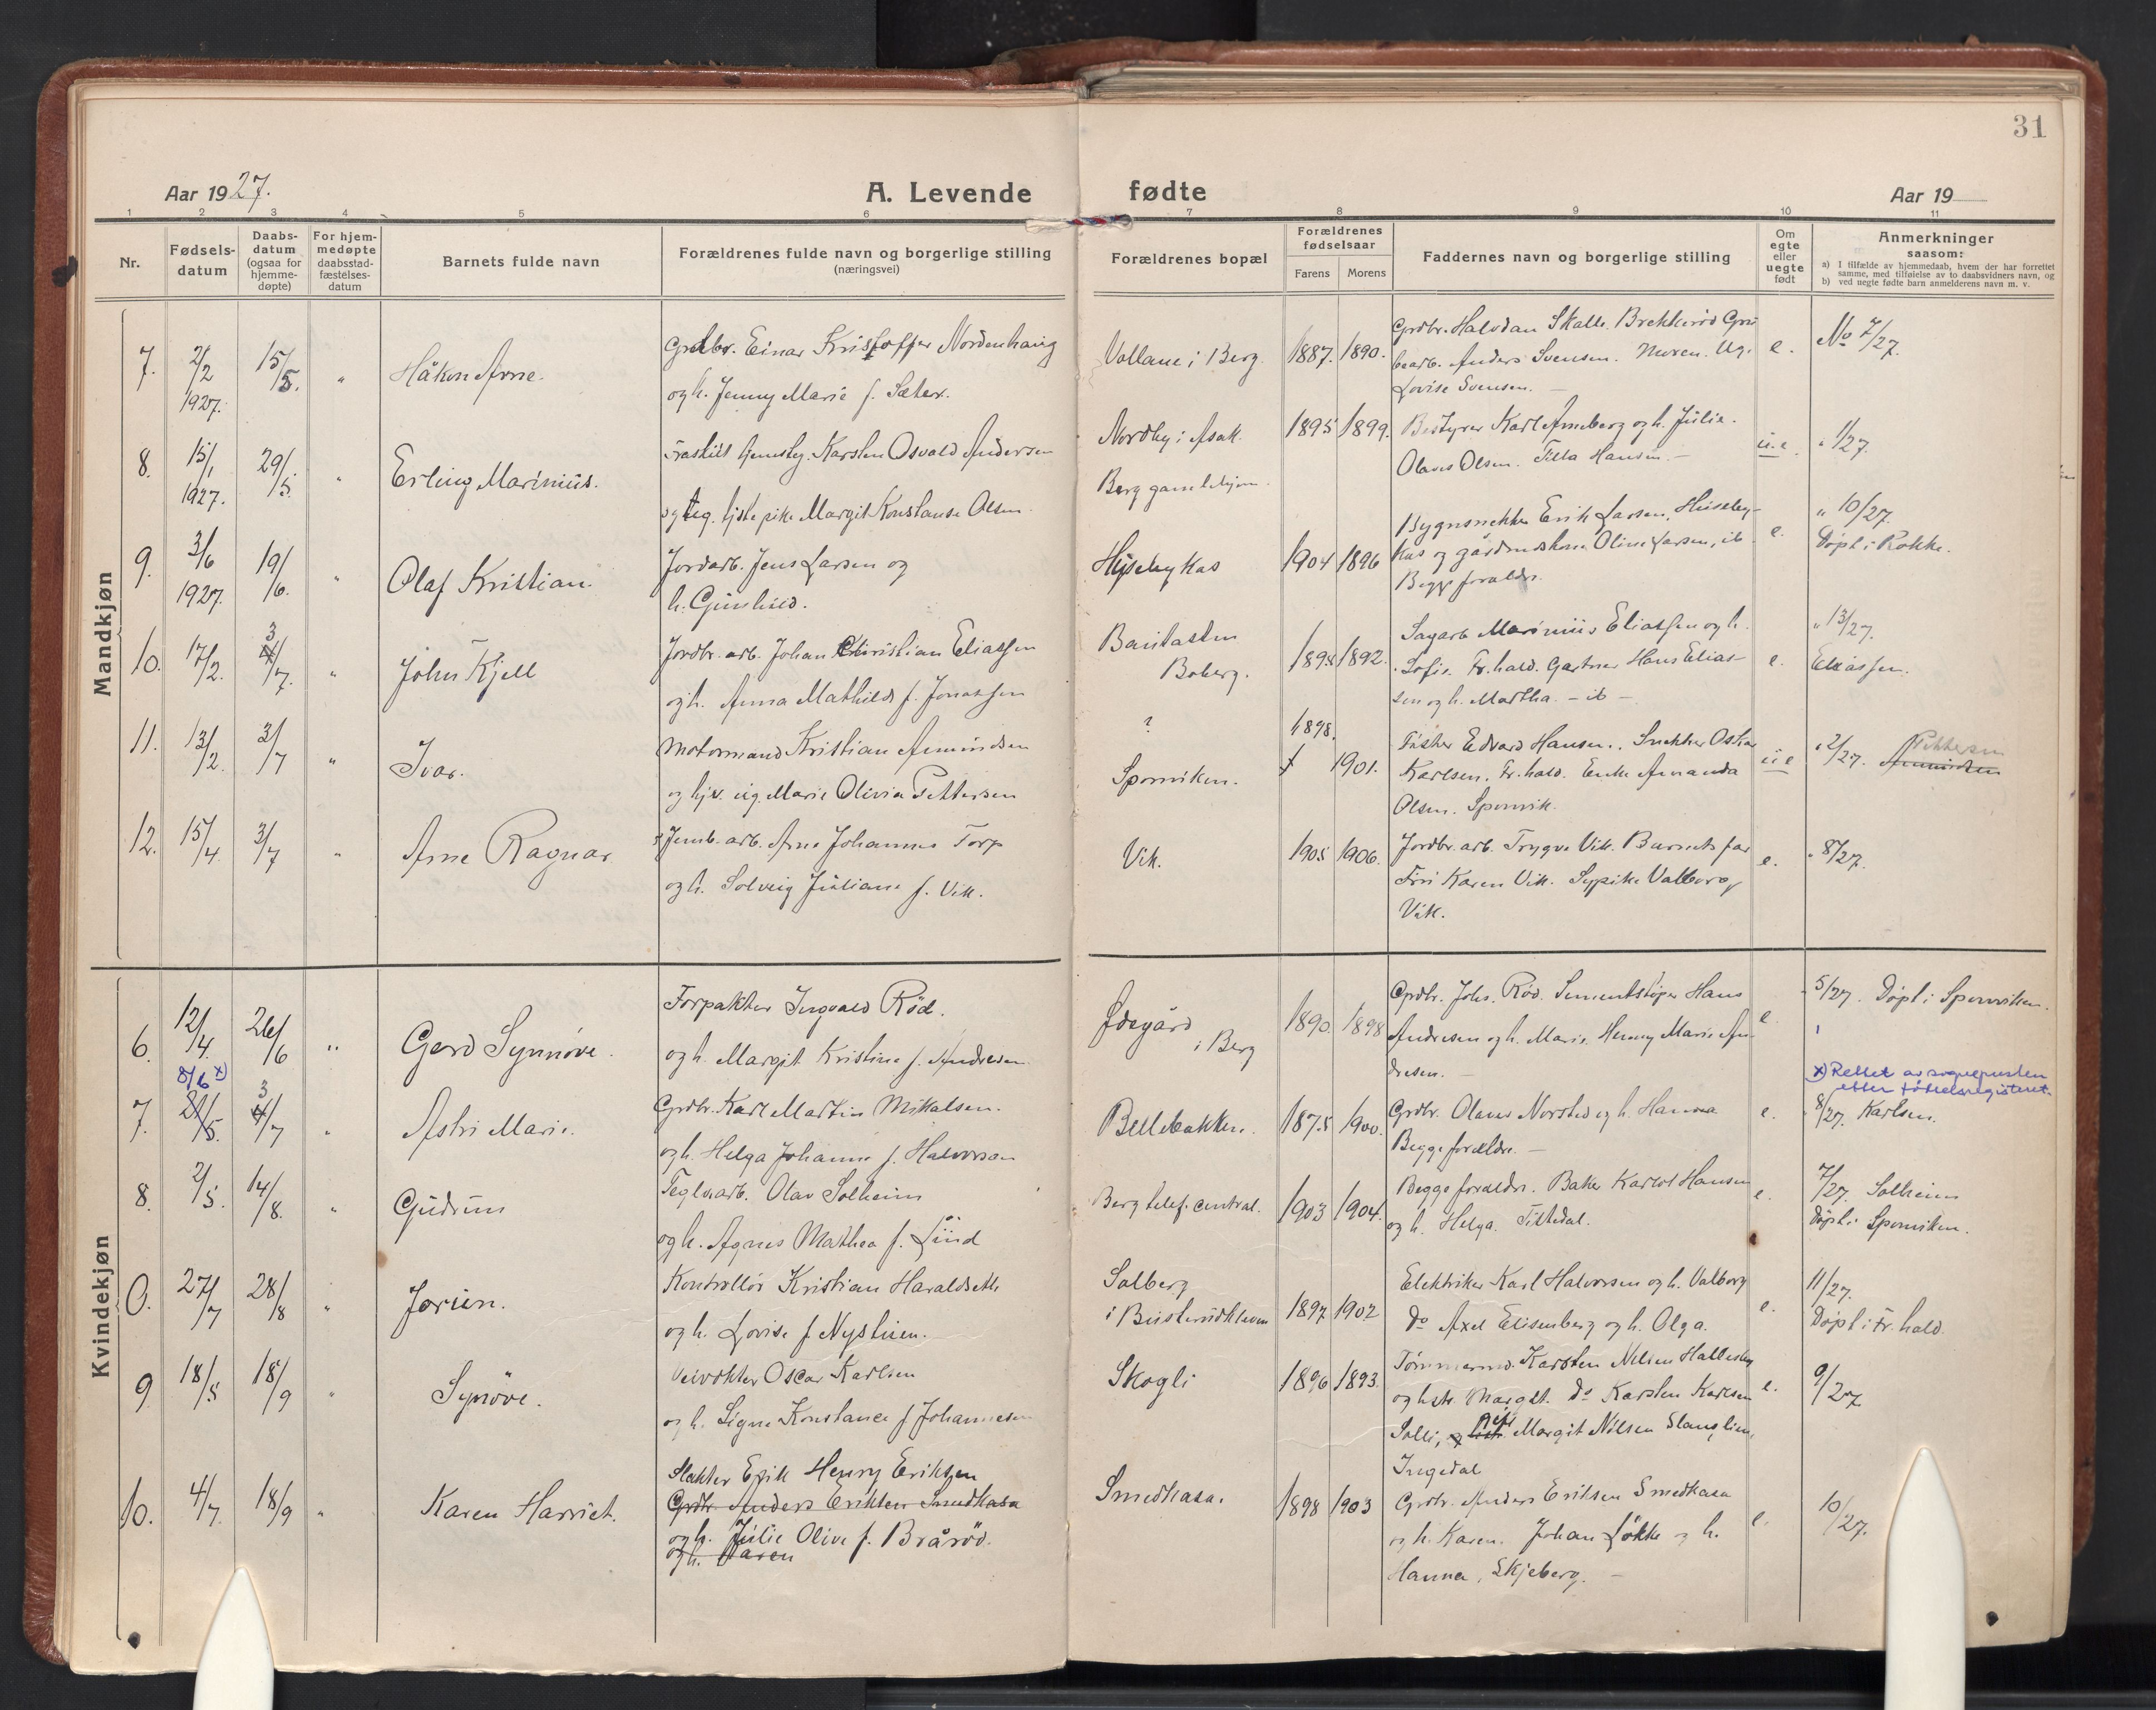 31
Aar 1927.
A. Levende fødte
Aar 19
1 2 3 4 5 6 7 8 9 10 11
Nr.
Fødsels-
datum
Daabs-
datum
(ogsaa for
hjemme-
døpte)
For hjem-
medøpte
daabsstad-
fæstelses-
datum
Barnets fulde navn
Forældrenes fulde navn og borgerlige stilling
(næringsvei)
Forældrenes bopæl
Forældrenes
fødselsaar
Farens Morens
Faddernes navn og borgerlige stilling
Om
egte
eller
uegte
født
Anmerkninger
saasom:
a) I tilfælde av hjemmedaab, hvem der har forrettet
samme, med tilføielse av to daabsvidners navn, og
b) ved uegte fødte barn anmelderens navn m. v.
Mandkjøn
7. 2/2 1927. 15/5. " Håkon Arne.
Grdbr. Einar Kristoffer Nordenhaug
og h. Jenny Marie f. Sæter.
Vollane i Berg. 1887. 1890.
Grdbr. Halvdan Skalle. Brekkerød
bearb. Anders Svensen. Ug.
Lovise Svensen. —
e. No 7/27.
8. 15/1 1927. 29/5. " Erling Marinius.
Karsten Osvald Andersen
og ug. tjstepike Margit Konstanse Olsen.
Nordby i Asak. 1895 1899.
Berg gamlehjem.
Bestyrer Karl Arneberg og h. Julie.
Olaves Olsen. Tilla Hansen. —
u.e. " 1/27.
9. 3/6 1927. 19/6. " Olaf Kristian.
Jordarb. Jens Larsen og
h. Gunhild.
Huseby Kas 1904 1896
Erik Larsen, Huseby-
kas og Oline Larsen, ib
Begge forældre.
e. " 10/27.
Døpt i Rokke.
10. 17/2. 3/7. " John Kjell
Jordbr. arb. Johan Christian Eliassen
og h. Anna Mathilde f. Jonassen
Bautasten
Boberg. 1895 1892.
Sagarb. Marinius Eliassen og h.
Sofie. Fr.hald. Gartner Hans Elias-
sen og h. Martha. — ib —
e. " 13/27.
Eliassen.
11. 13/2. 3/7 " Ivar.
Motormand Kristian Amundsen
og hjv. ug. Marie Olivia Pettersen
?
Sponviken. 1898. 1901.
Fisker Edvard Hansen. Snekker Oskar
Karlsen. Fr.hald. Enke Amanda
Olsen. Sponvik.
u e " 2/27. Amundsen Pettersen
12. 15/4. 3/7 " Arne Ragnar.
Jernb. arb. Arne Johannes Torp
og h. Solveig Juliane f. Vik.
Vik. 1905 1906.
Jordbr. arb. Trygve Vik. Barnets far
Fru Karen Vik. Sypike Valborg
Vik.
e. " 8/27.
Kvindekjøn
6. 12/4. 26/6 " Gerd Synnøve.
Forpakter Ingvald Rød.
og h. Margit Kristine f. Andresen
Ødegård
i Berg 1890 1898
Grdbr. Johs. Rød. Sementstøper Hans
Andresen og h. Marie. Henny Marie An-
dresen. —
e. " 5/27. Døpt i Sponviken.
7. 8/6 x) 21/5. 3/7 " Astri Marie.
Grdbr. Karl Martin Mikalsen.
og h. Helga Johanne f. Halvorsen
Bellebakken. 1875 1900.
Grdbr. Olaves Norsted og h. Hanna
Begge forældre. —
e. x) Rettet av sognepresten
etter fødselsregisteret.
8/27. Karlsen.
8. 2/5. 14/8. " Gudrun
Teglv.arb. Olav Solheim
og h. Agnes Mathea f. Lund
Berg telef. central. 1903 1904.
Begge forældre. Baker Karlot Hansen
og h. Helga. Tistedal.
e. 7/27. Solheim
Døpt i Sponviken.
0. 27/7 28/8 " Jorun.
Kontrollør Kristian Haraldseth
og h. Lovise f Nystuen.
Solberg
1897 1902
Elektriker Karl Halvorsen og h. Valborg
do Axel Elisenberg og h. Olga.
e. 11/27.
Døpt i Fr.hald.
9. 18/5 18/9 " Synøve.
Veivokter Oscar Karlsen
og h. Signe Konstance f Johannesen
Skogli 1896 1893.
Tømmermd. Karsten Nilsen Hallesby
og hstr. Margit. do Karsten Karlsen
Solli, Margit Nilsen Slanglien,
Ingedal
e. 9/27
10. 4/7. 18/9 " Karen Harriet.
Slakter Erik Henry Eriksen
Grdbr. Anders Eriksen Smedkasa
og h. Julie Olive f. Brårød.
og h. Karen
Smedkasa. 1898 1903
Grdbr. Anders Eriksen Smedkasa
og h. Karen. Johan Løkke og h.
Hanna, Skjeberg. —
e. 10/27.